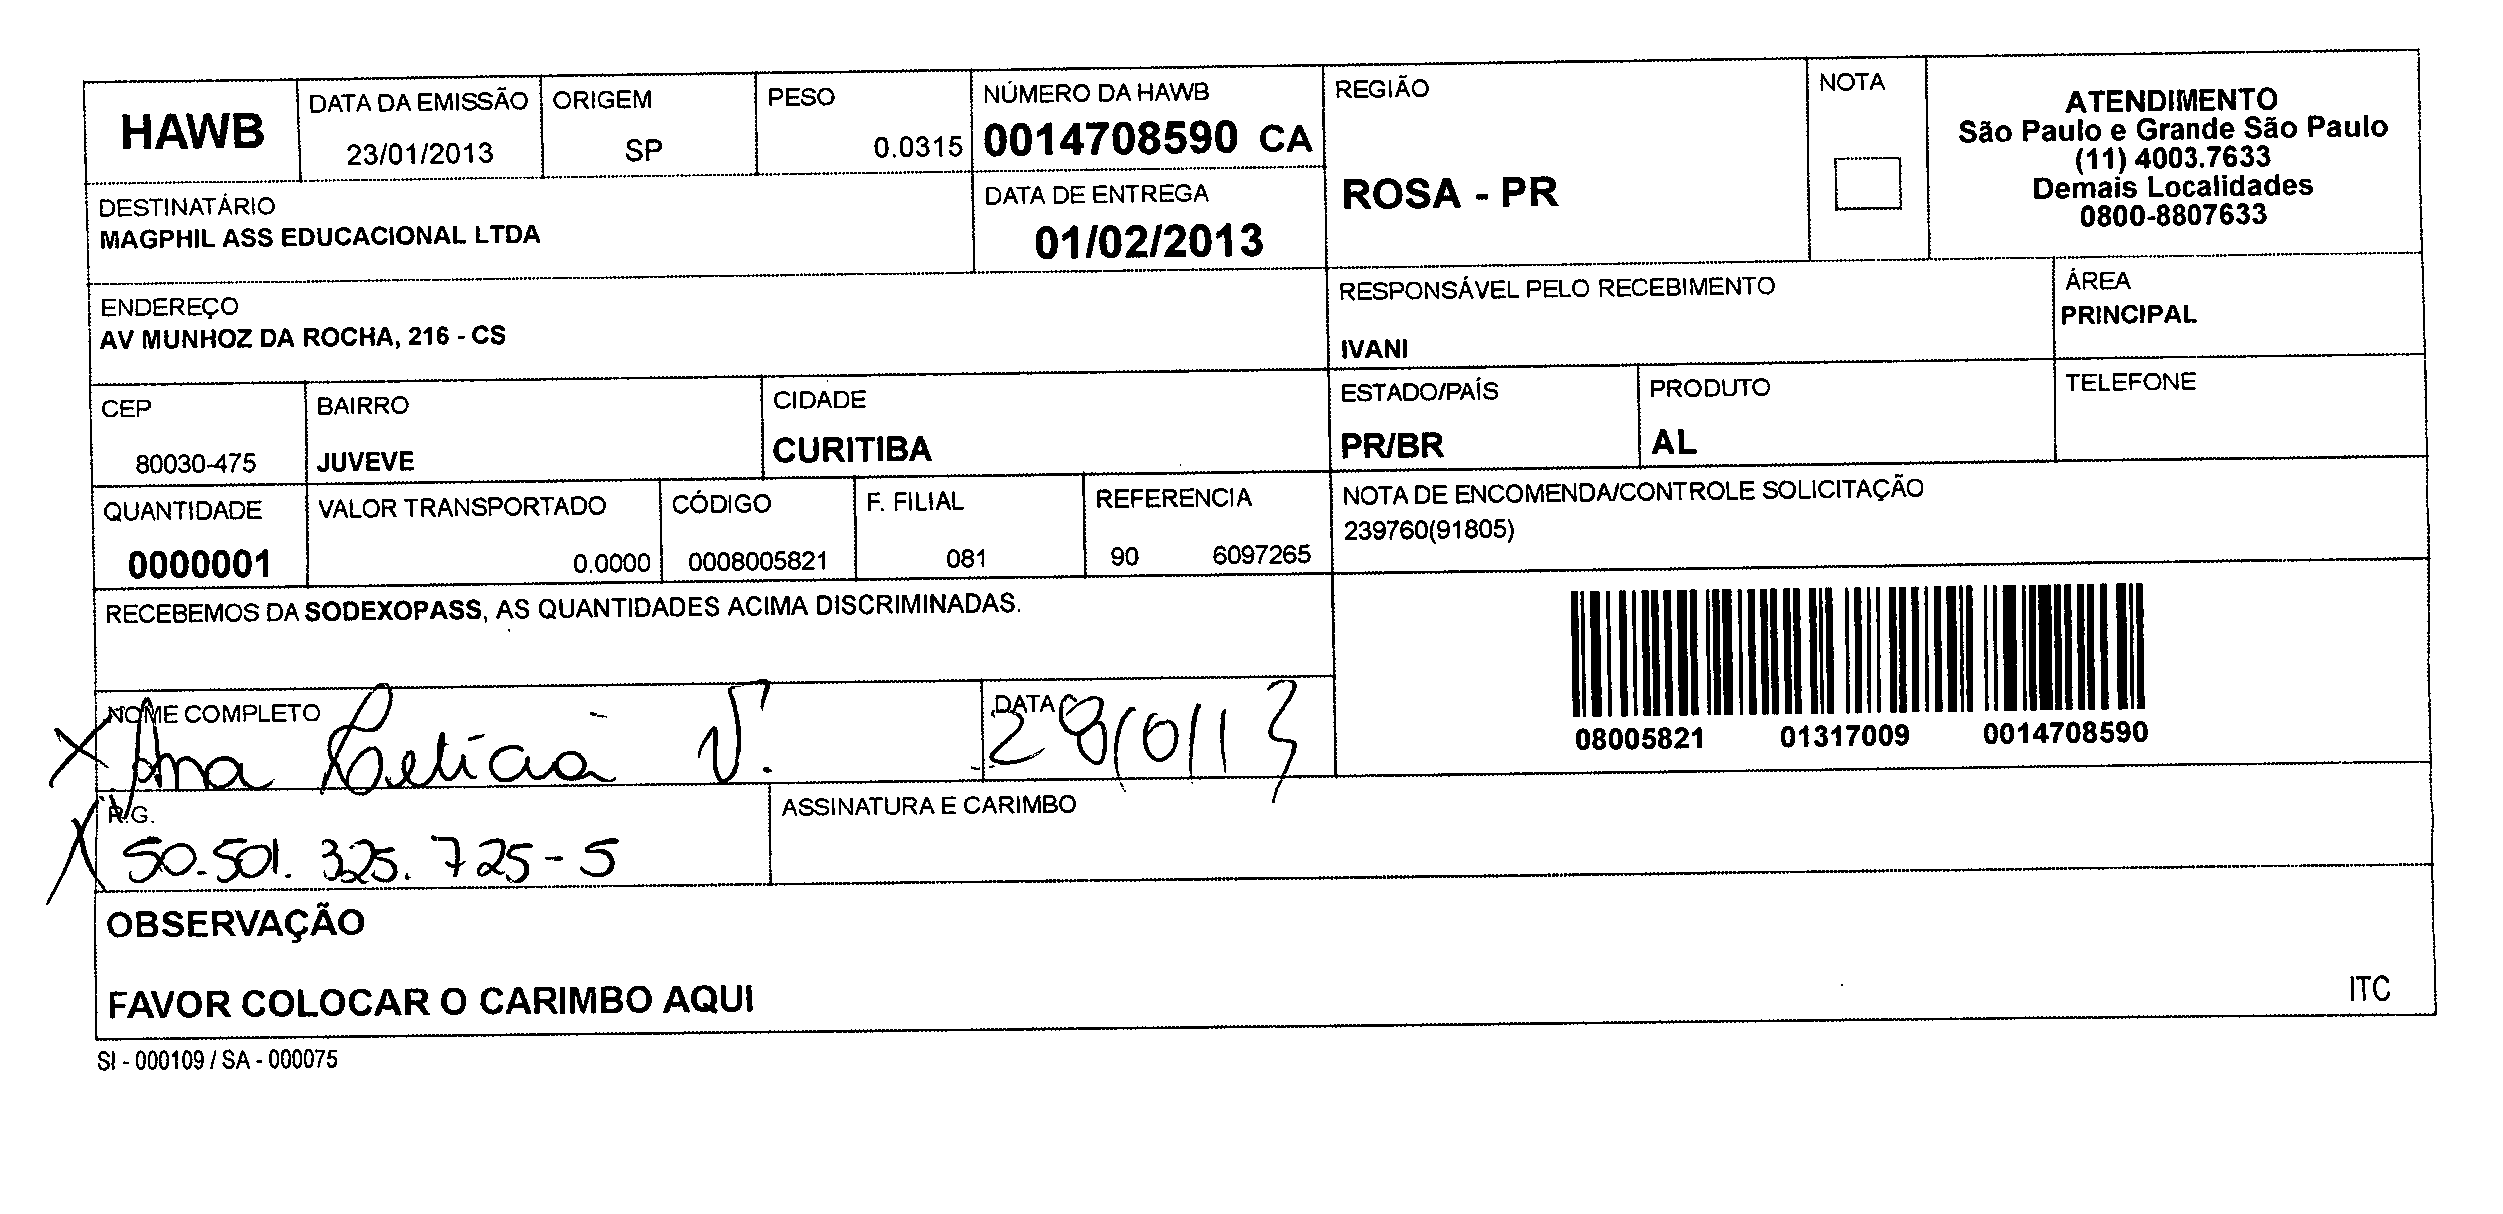 HAWB
DATA DA EMISSÃO
23/01/2013
ORIGEM
SP
PESO
0.0315
NÚMERO DA HAWB
0014708590 CA
REGIÃO
ROSA - PR
NOTA
ATENDIMENTO
São Paulo e Grande São Paulo
(11) 4003.7633
Demais Localidades
0800-8807633
DESTINATÁRIO
MAGPHIL ASS EDUCACIONAL LTDA
DATA DE ENTREGA
01/02/2013
ENDEREÇO
AV MUNHOZ DA ROCHA, 216 - CS
RESPONSÁVEL PELO RECEBIMENTO
IVANI
ÁREA
PRINCIPAL
CEP
80030-475
BAIRRO
JUVEVE
CIDADE
CURITIBA
ESTADO/PAÍS
PR/BR
PRODUTO
AL
TELEFONE
QUANTIDADE
0000001
VALOR TRANSPORTADO
0.0000
CÓDIGO
0008005821
F. FILIAL
081
REFERENCIA
90 6097265
NOTA DE ENCOMENDA/CONTROLE SOLICITAÇÃO
239760(91805)
RECEBEMOS DA SODEXOPASS, AS QUANTIDADES ACIMA DISCRIMINADAS.
08005821 01317009 0014708590
NOME COMPLETO
X Ana Letícia V.
DATA
28/01/13
R.G.
X 50.501.325.725-5
ASSINATURA E CARIMBO
OBSERVAÇÃO
FAVOR COLOCAR O CARIMBO AQUI
ITC
SI - 000109 / SA - 000075